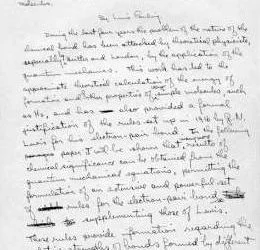 molecules.
By Linus Pauling
During the last four years the problem of the nature of the
chemical bond has been attacked by theoretical physicists,
especially Heitler and London, by the application of the
quantum mechanics. This work has led to the
approximate theoretical calculation of the energy of
formation and other properties of simple molecules, such
as H2, and has also provided a formal
justification of the rules set up in 1916 by G. N.
Lewis for his electron-pair bond. In the following
paper it will be shown that results of
chemical significance can be obtained from the
quantum mechanical equations, permitting the
formulation of an extensive and powerful set
of rules for the electron-pair bond
supplementing those of Lewis.
These rules provide information regarding the
strengths of bonds formed by different